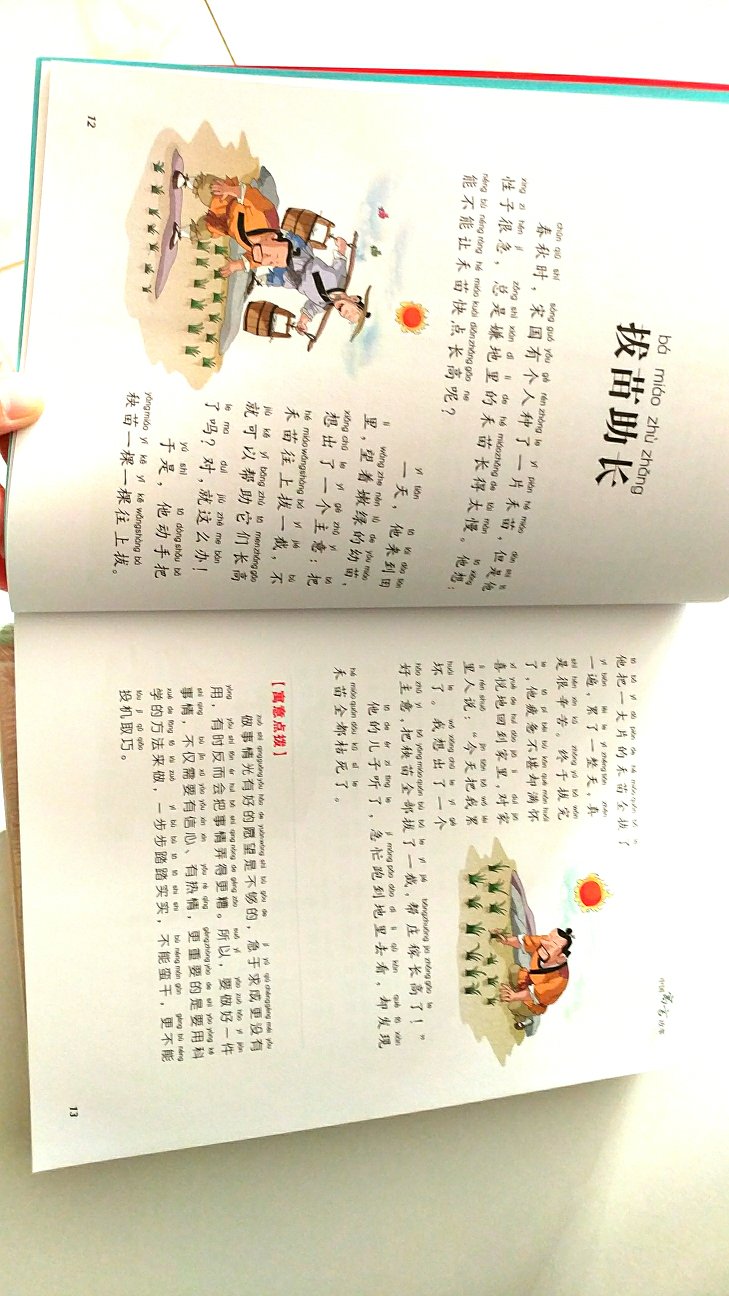 bá miáo zhù zhǎng
拔苗助长
chūn qiū shí sòng guó yǒu gè rén zhòng le yí piàn hé miáo dàn shì tā
春秋时，宋国有个人种了一片禾苗，但是他
xìng zi hěn jí zǒng shì xián dì li de hé miáo zhǎng de tài màn tā xiǎng
性子很急，总是嫌地里的禾苗长得太慢。他想：
néng bù néng ràng hé miáo kuài diǎn zhǎng gāo ne
能不能让禾苗快点长高呢？
yì tiān tā lái dào tián
一天，他来到田
li wàng zhe nèn lǜ de yòu miáo
里，望着嫩绿的幼苗，
xiǎng chū le yí gè zhǔ yi bǎ
想出了一个主意：把
hé miáo wǎng shàng bá yì jié bú
禾苗往上拔一截，不
jiù kě yǐ bāng zhù tā men zhǎng gāo
就可以帮助它们长高
le ma duì jiù zhè me bàn
了吗？对，就这么办！
yú shì tā dòng shǒu bǎ
于是，他动手把
yāng miáo yì kē yì kē wǎng shàng bá
秧苗一棵一棵往上拔。
12
寓言故事
tā bǎ yí dà piàn de hé miáo quán bá le
他把一大片的禾苗全拔了
yí biàn lèi le yì zhěng tiān zhēn
一遍，累了一整天，真
shì hěn xīn kǔ zhōng yú bá wán
是很辛苦。终于拔完
le tā pí bèi bù kān què mǎn huái
了，他疲惫不堪却满怀
xǐ yuè de huí dào jiā li duì jiā
喜悦地回到家里，对家
li rén shuō jīn tiān bǎ wǒ lèi
里人说：“今天把我累
huài le wǒ xiǎng chū le yí gè
坏了。我想出了一个
hǎo zhǔ yi bǎ yāng miáo quán bù bá le yì jié bāng zhuāng jia zhǎng gāo le
好主意，把秧苗全部拔了一截，帮庄稼长高了！”
tā de ér zi tīng le jí máng pǎo dào dì li qù kàn què fā xiàn
他的儿子听了，急忙跑到地里去看，却发现
hé miáo quán dōu kū sǐ le
禾苗全都枯死了。
【寓意点拨】
zuò shì qing guāng yǒu hǎo de yuàn wàng shì bú gòu de jí yú qiú chéng gèng méi yǒu
做事情光有好的愿望是不够的，急于求成更没有
yòng yǒu shí fǎn ér huì bǎ shì qing nòng de gèng zāo suǒ yǐ yào zuò hǎo yí jiàn
用，有时反而会把事情弄得更糟。所以，要做好一件
shì qing bù jǐn xū yào yǒu xìn xīn yǒu rè qíng gèng zhòng yào de shì yào yòng kē
事情，不仅需要有信心、有热情，更重要的是要用科
xué de fāng fǎ lái zuò yí bù bù tā tā shí shí bù néng mán gàn gèng bù néng
学的方法来做，一步步踏踏实实，不能蛮干，更不能
tóu jī qǔ qiǎo
投机取巧。
13